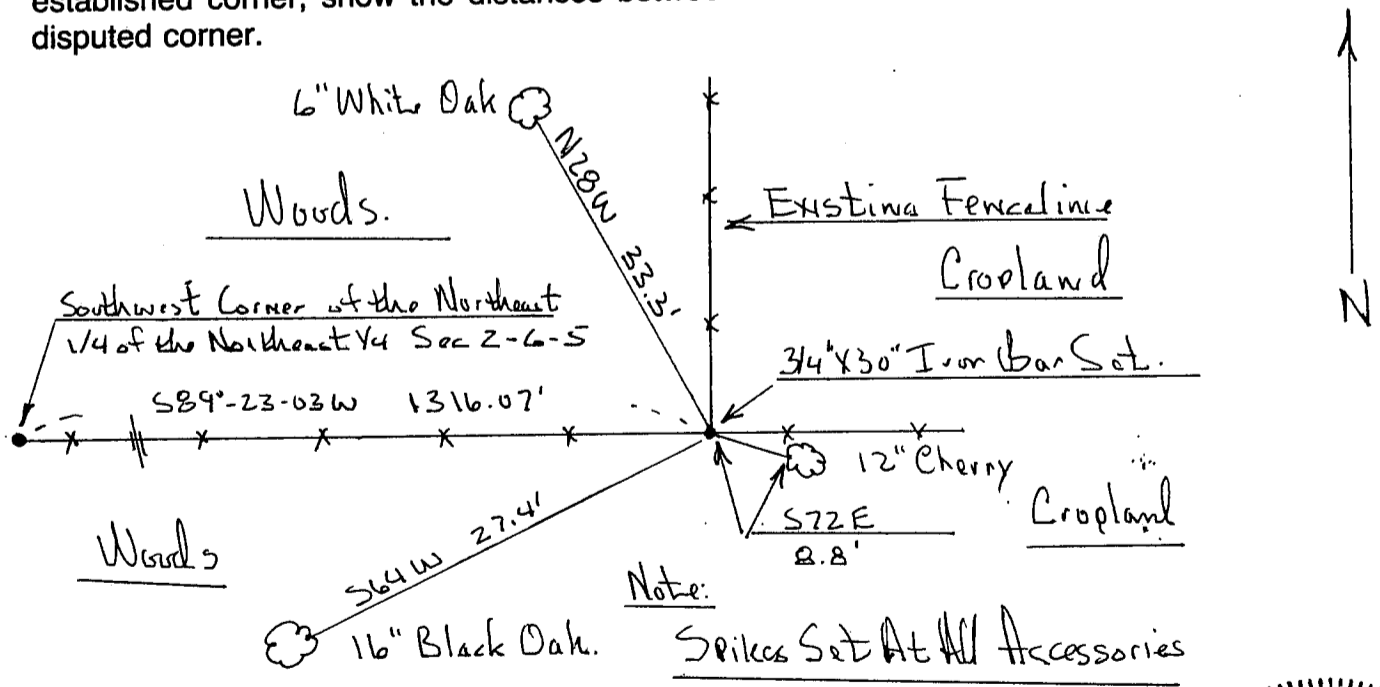 established corner, show the distances
disputed corner.
6" White Oak
N28W 33.3'
Woods.
Existing Fenceline
Cropland
Southwest Corner of the Northeast
1/4 of the Northeast 1/4 Sec 2-6-5
3/4"X30" Iron Bar Set.
S89°-23-03W 1316.07'
12" Cherry
S72E
8.8'
Cropland
Woods
S64W 27.4'
16" Black Oak.
Note:
Spikes Set At All Accessories
N